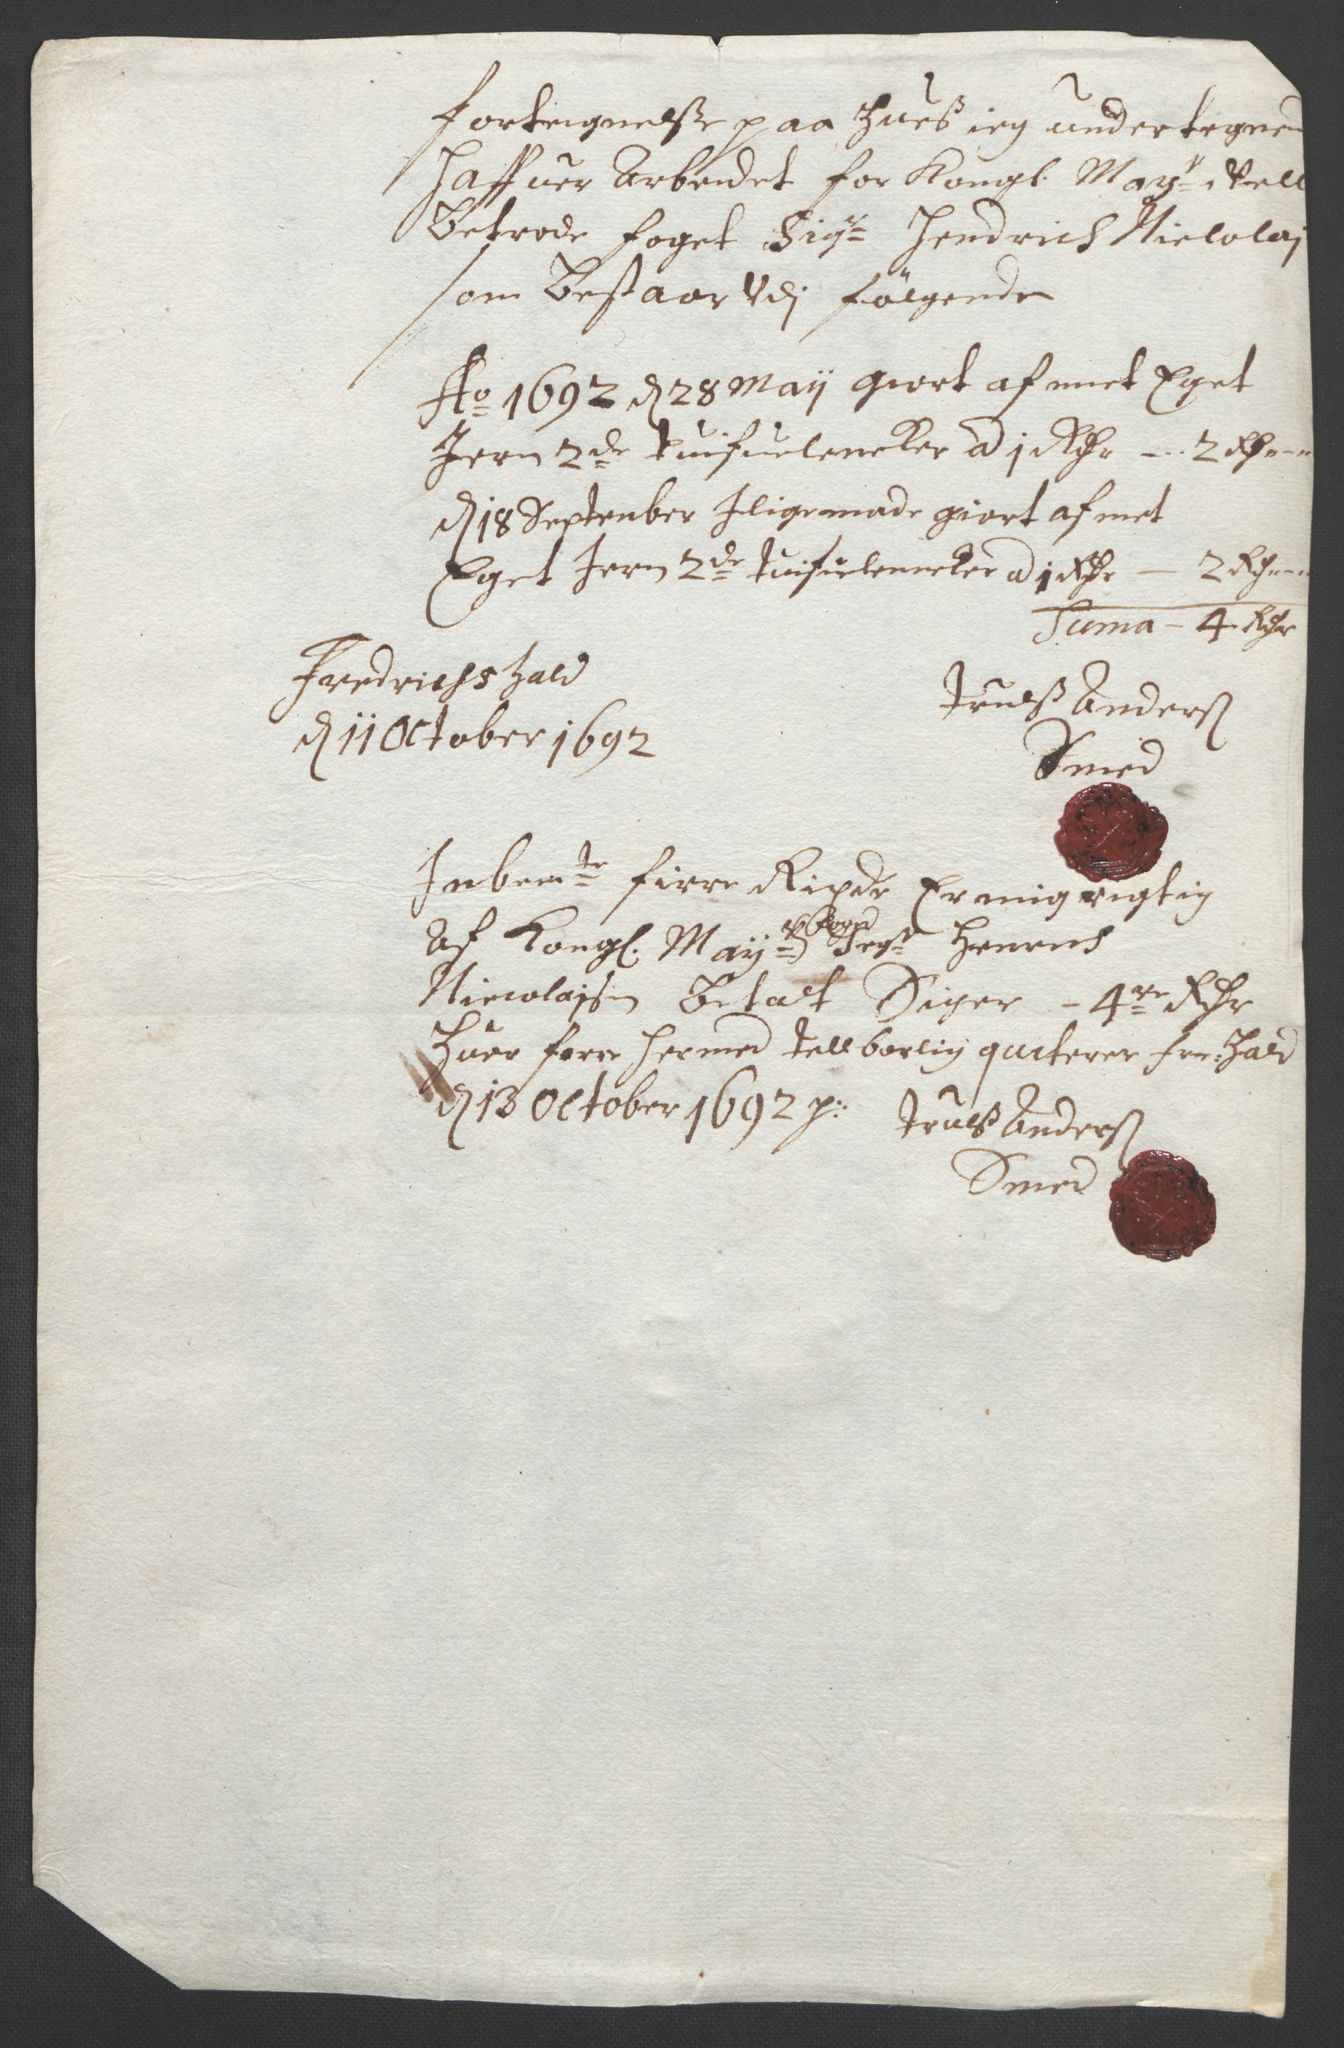 Forteignelsse paa Hues ieg undertegnede
Haffuer Arbeidet for Kongl. Mayt: Vell
Betrode Foget Sigr: Hendrich Nicolaj
som Bestaar Vdj følgende
Ao 1692 d 28 Maij giort af mit Eget
Jern 2de tuifuelencker a 1 Rdr --- 2 Rdr ---
d 18 September Iligemaade giort af met
Eget Jern 2de tuifuelencker a 1 Rdr — 2 Rdr ---
Suma — 4 Rdr
Fredrichs hald
d 11 October 1692
Truls Anderss
Smed
Inbente firre Rixdr Er mig rigtig
Af Kongl. Mayts foged Sigr Henrich
Nicolajsen Betalt Siger — 4re Rdr
Huor forre hermed tell børlig quiterer fri: Hald
d 13 October 1692 p:
Truls Anderss
Smed